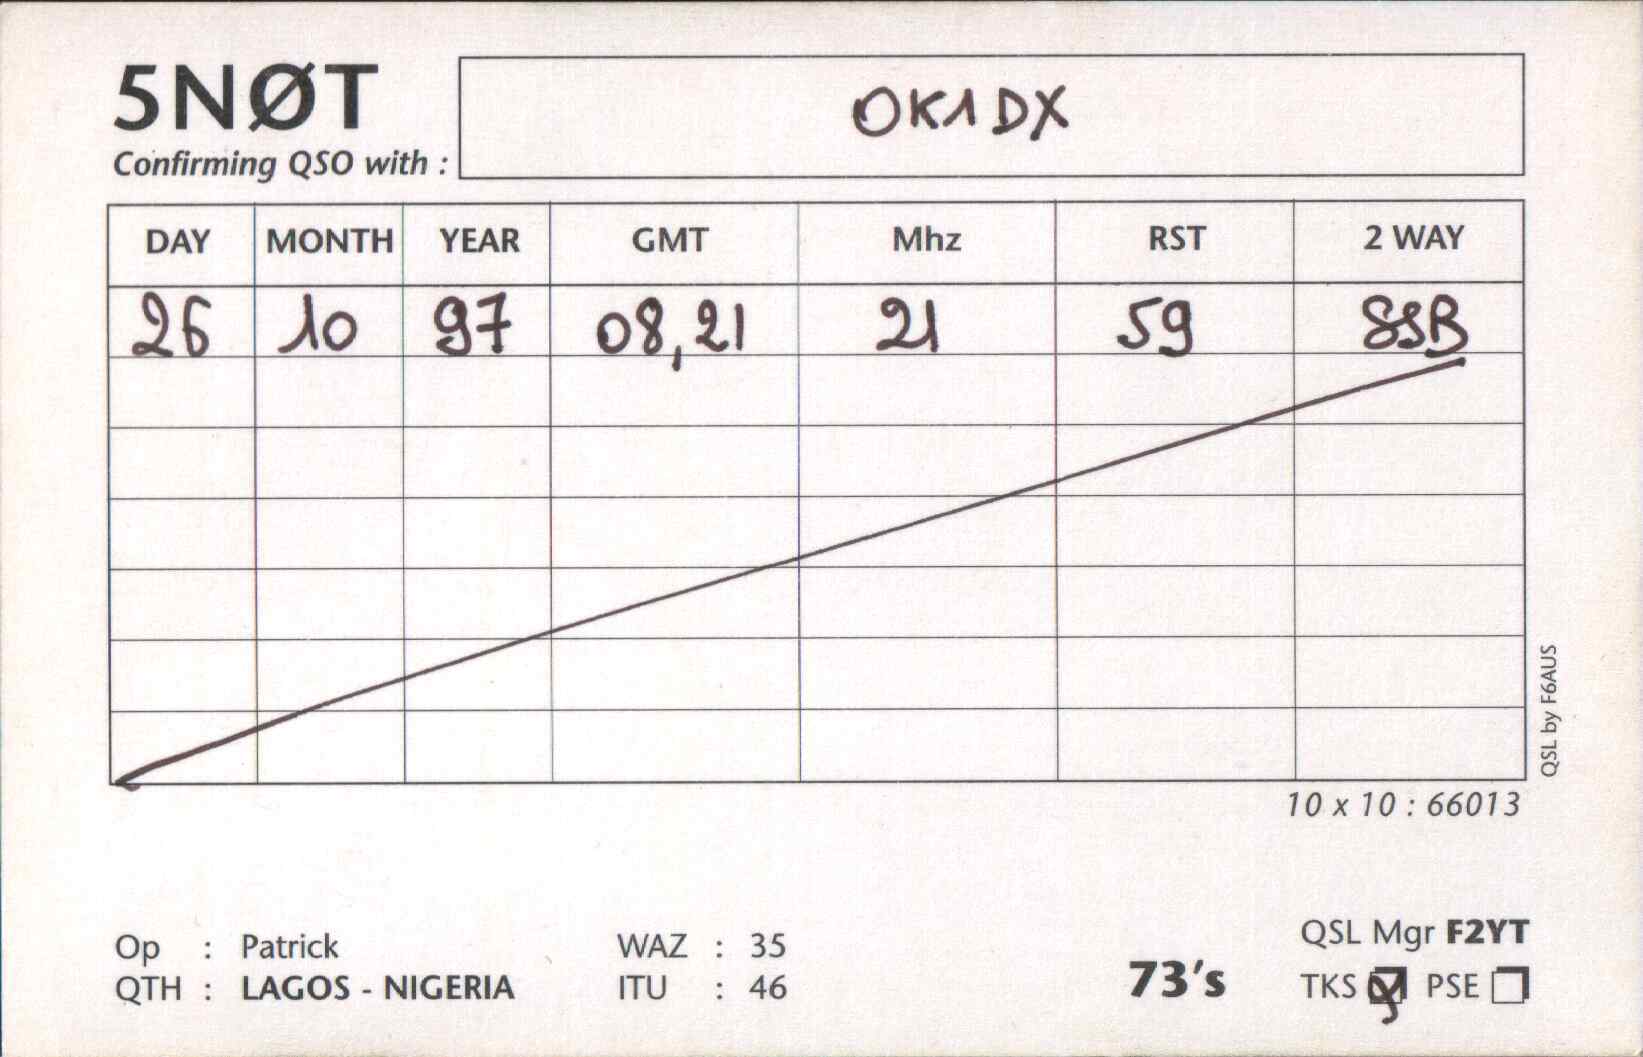 5NØT
OK1DX
Confirming QSO with :
DAY MONTH YEAR GMT Mhz RST 2 WAY
26 10 97 08,21 21 59 SSB
QSL by F6AUS
10 x 10 : 66013
Op : Patrick WAZ : 35 QSL Mgr F2YT
QTH : LAGOS - NIGERIA ITU : 46 73's TKS PSE